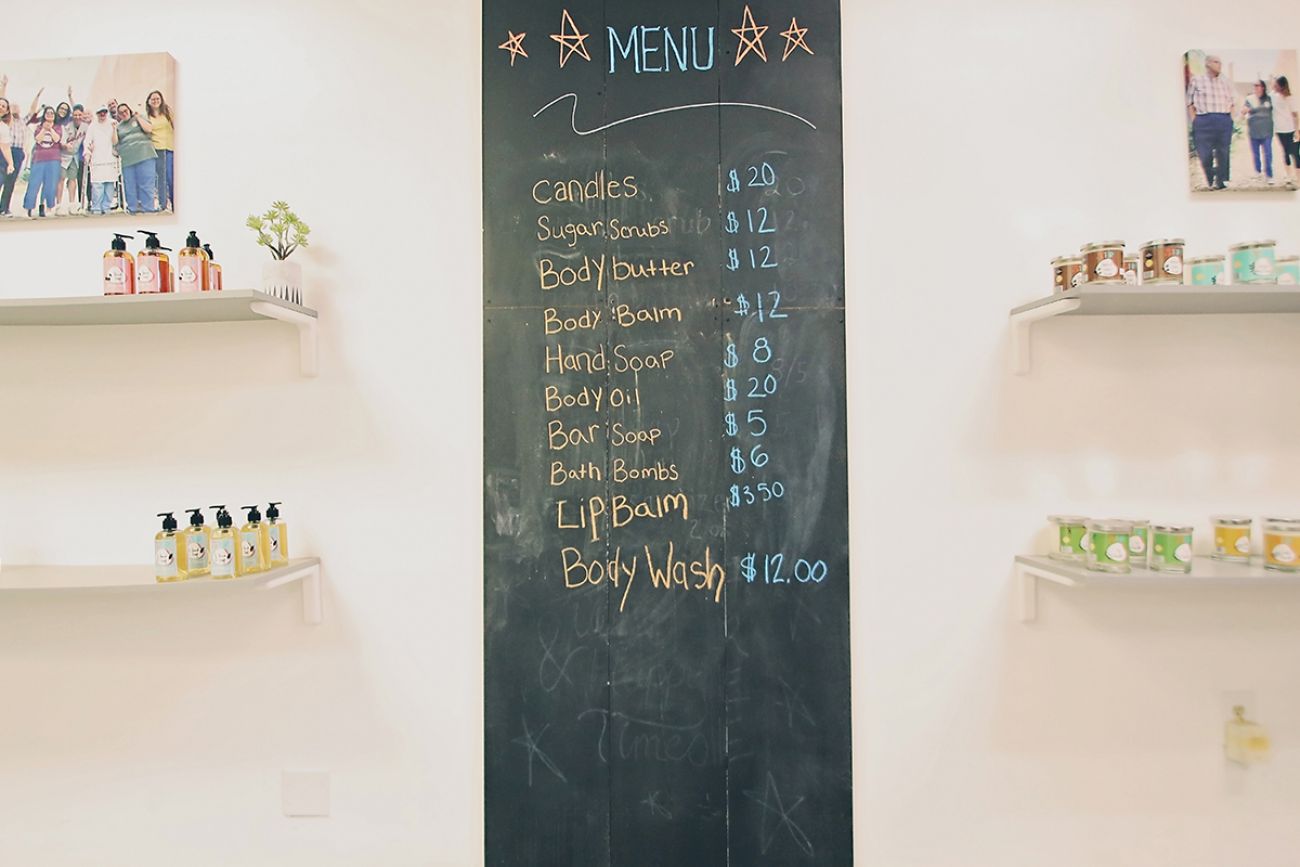 MENU
Candles $20
Sugar Scrubs $12
Body butter $12
Body Balm $12
Hand Soap $8
Body Oil $20
Bar Soap $5
Bath Bombs $6
Lip Balm $350
Body Wash $12.00
&
Times